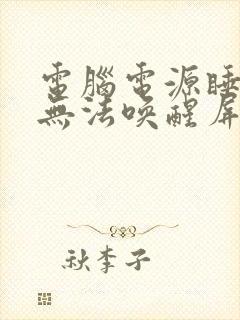 電腦電源睡
無法喚醒屏
秋李子